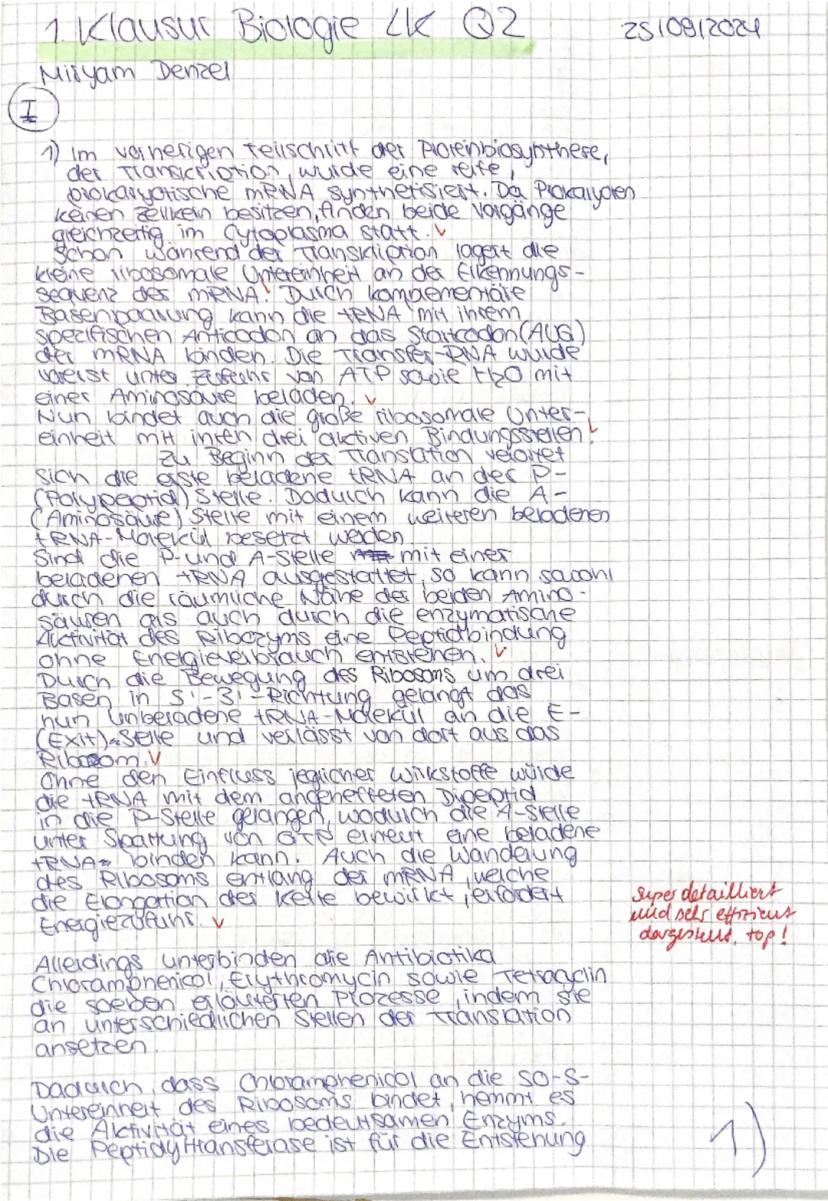 1 Klausur Biologie LK Q2 25/09/2024
Miryam Denzel
I
1) Im vorherigen Teilschritt der Proteinbiosynthese,
der Transkription, wurde eine reife,
prokaryotische mRNA synthetisiert. Da Prokaryoten
keinen Zellkern besitzen, finden beide Vorgänge
gleichzeitig im Cytoplasma statt.
Schon während der Transkription lagert die
kleine ribosomale Untereinheit an der Erkennungs-
sequenz der mRNA. Durch komplementäre
Basenpaarung kann die tRNA mit ihrem
spezifischen Anticodon an das Startcodon (AUG)
der mRNA binden. Die Transfer-RNA wurde
vorerst unter Zufuhr von ATP sowie H2O mit
einer Aminosäure beladen.
Nun bindet auch die große ribosomale Unter-
einheit mit ihren drei aktiven Bindungsstellen.
Zu Beginn der Translation verortet
sich die erste beladene tRNA an der P-
(Polypeptid) Stelle. Dadurch kann die A-
(Aminosäure) Stelle mit einem weiteren beladenen
tRNA-Molekül besetzt werden
Sind die P-und A-Stelle mit einer
beladenen tRNA ausgestattet, so kann sowohl
durch die räumliche Nähe der beiden Amino-
säuren als auch durch die enzymatische
Aktivität des Ribozyms eine Peptidbindung
ohne Energieverbrauch entstehen.
Durch die Bewegung des Ribosoms um drei
Basen in 5'-3'-Richtung gelangt das
nun unbeladene tRNA-Molekül an die E-
(Exit)-Stelle und verlässt von dort aus das
Ribosom.
Ohne den Einfluss jeglicher Wirkstoffe würde
die tRNA mit dem angehefteten Dipeptid
in die P-Stelle gelangen, wodurch die A-Stelle
unter Spaltung von GTP erneut eine beladene
tRNA binden kann. Auch die Wanderung
des Ribosoms entlang der mRNA, welche
die Elongation der Kette bewirkt, erfordert
Energiezufuhr.
Super detailliert
und sehr effizient
dargestellt, top!
Allerdings unterbinden die Antibiotika
Chloramphenicol, Erythromycin sowie Tetracyclin
die soeben erläuterten Prozesse, indem sie
an unterschiedlichen Stellen der Translation
ansetzen.
Dadurch, dass Chloramphenicol an die 50-S-
Untereinheit des Ribosoms bindet, hemmt es
die Aktivität eines bedeutsamen Enzyms.
Die Peptidyltransferase ist für die Entstehung
1)